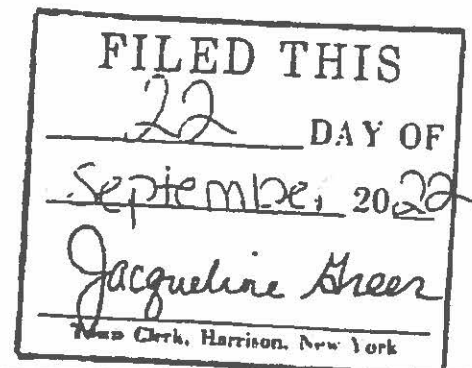 FILED THIS
22 DAY OF
September, 2022
Jacqueline Greer
Town Clerk, Harrison, New York